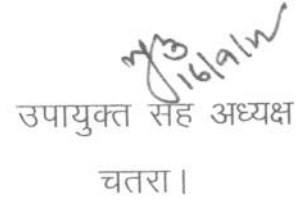 16/9/11
उपायुक्त सह अध्यक्ष
चतरा।